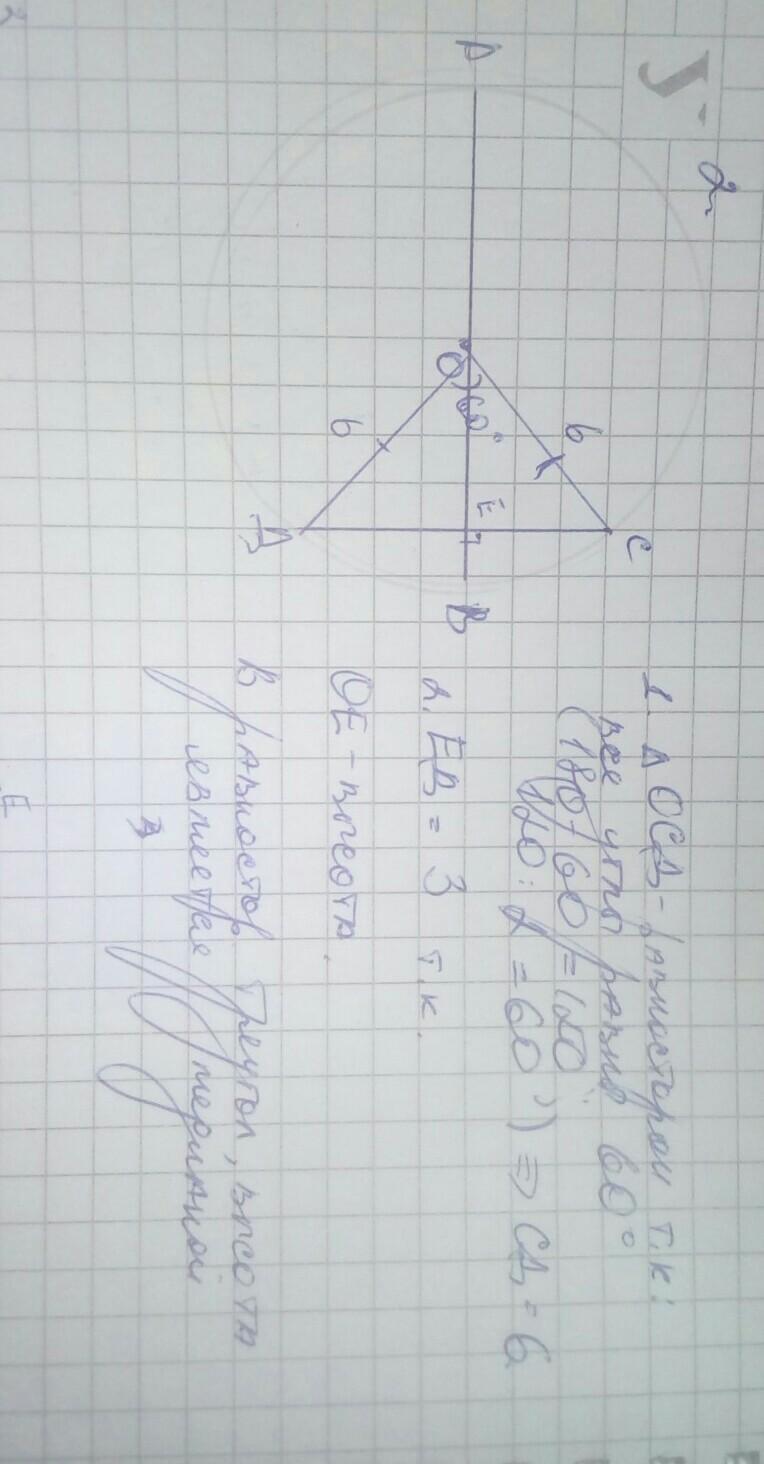 2
A
O
60°
6
6
E
C
Д
B
1. Δ OCД - равносторон т.к:
все углы равны 60°
(180-60=120;
120:2=60°) ⇒ СД=6
2. EД = 3 т.к.
OE - высота.
В равностор треугол, высота
является медианой
E